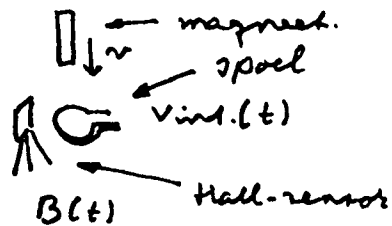 magneet.
v
spoel
Vind.(t)
Hall-sensor
B(t)